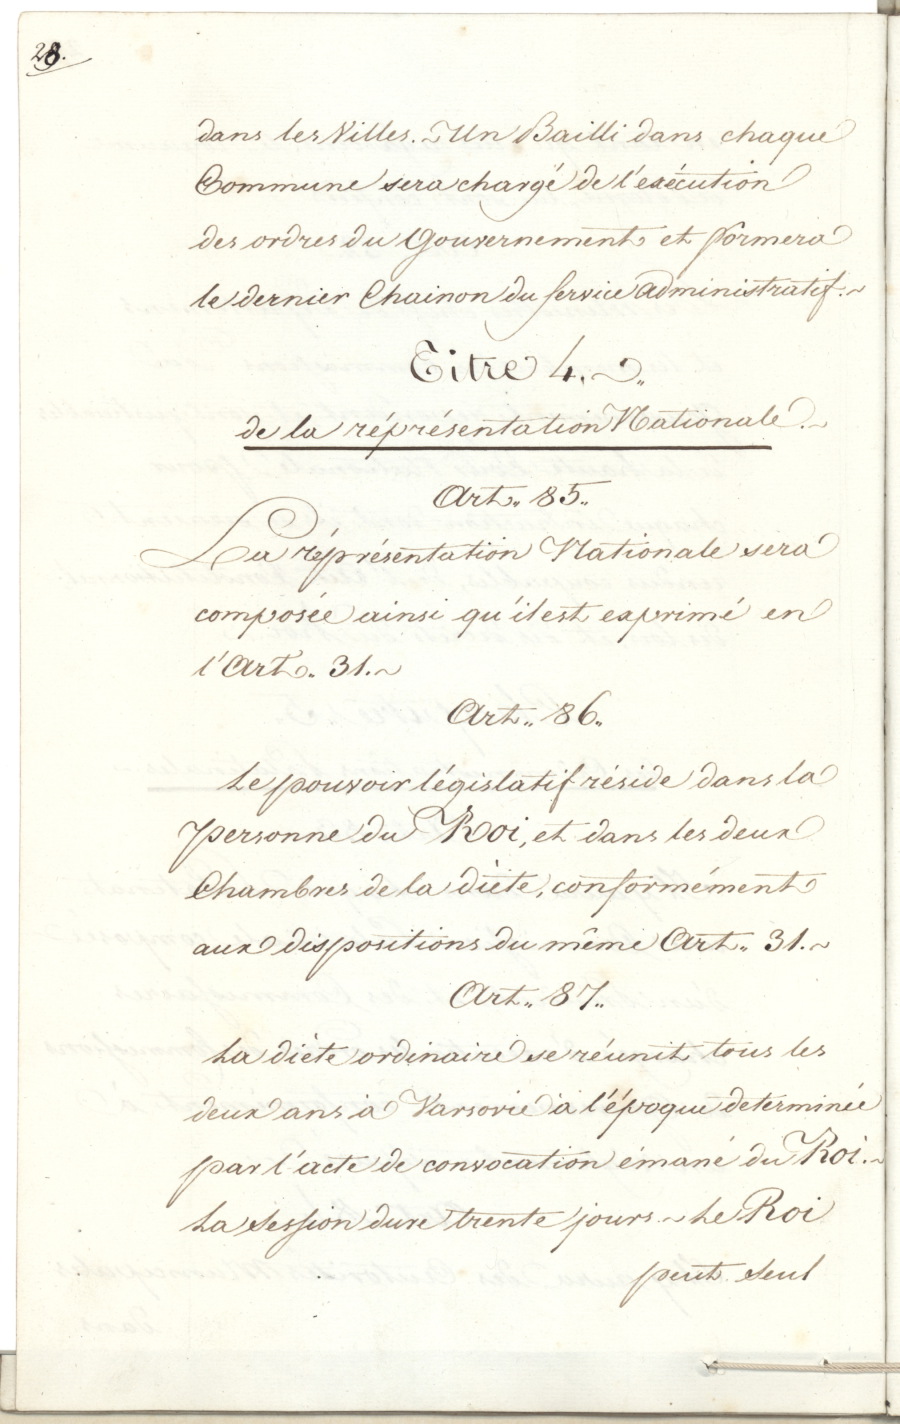 28.
dans les Villes. ~ Un Bailli dans chaque
Commune sera chargé de l'exécution
des ordres du Gouvernement et formera
le dernier Chainon du service administratif. ~
Titre 4. ~
de la réprésentation Nationale. ~
Art. 85.
La réprésentation Nationale sera
composée ainsi qu'il est exprimé en
l'Art. 31. ~
Art. 86.
Le pouvoir législatif réside dans la
personne du Roi, et dans les deux
Chambres de la diète, conformément
aux dispositions du même Art. 31. ~
Art. 87.
La diète ordinaire se réunit tous les
deux ans à Varsovie à l'époque determinée
par l'acte de convocation émané du Roi. ~
La session dure trente jours. ~ Le Roi
peut seul